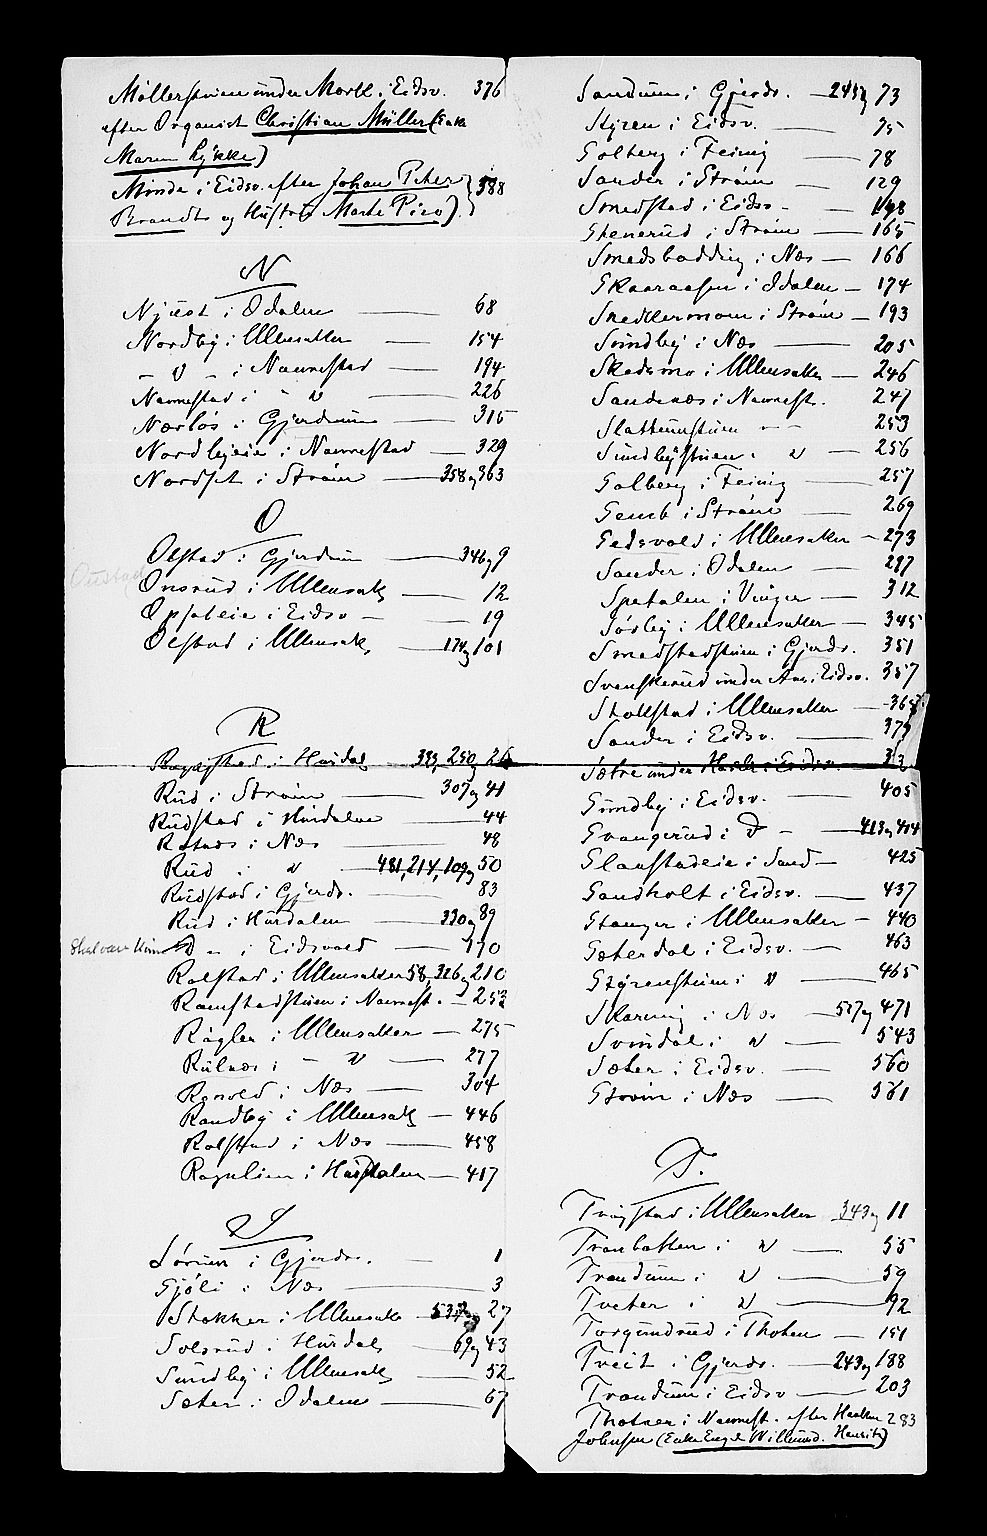 Möllerstuen under Morll. i Eidsv. 376
efter Organist Christian Müller (Enke
Maren Lykke)
Minde i Eidsv. efter Johan Peter
Brandt og Hustr. Marte Piro). 388
N
Njust i Odalen 68
Nordby i Ullensaker 154
- " - i Nannestad 194
Nannestad i - " 226
Nærløs i Gjerdrum 315
Nordbyeie i Nannestad 329
Nordset i Strøm 358 og 363
O
Olstad i Gjerdrum 346 og 9
Onsrud i Ullensak. 12
Opsaleie i Eidsv 19
Olstad i Ullensak. 174 og 101
R
i Hurdal 250 og
Rud i Strøm 307 og 41
Rudstad i Hurdalen 44
Rotnes i Næs 48
Rud i " 481, 214, 109 og 50
Rudstad i Gjerdr. 83
Rud i Hurdalen 330 og 89
Skal være Hurd D - i Eidsvold 170
Rolstad i Ullensaker 58, 326 og 210
Ramstadstuen i Nannest. 252
Rågler i Ullensaker 275
Rulnæs i - " 277
Ronold i Næs 304
Randby i Ullensak 446
Rolstad i Næs 458
Rognlien i Hurdalen 417
S
Sørum i Gjerdr. 1
Sjöli i Næs 3
Stokker i Ullensak 27
Solsrud i Hurdal 69 og 43
Sundby i Ullensak 52
Sæter i Odalen 67
Sandum i Gjerdr. 245 og 73
Styren i Eidsv. 75
Solberg i Feiring 78
Sander i Strøm 129
Smedstad i Eidsv 148
Stenerud i Strøm 165
Smedsbadding i Næs 166
Skaaraasen i Odalen 174
Snedkermoen i Strøm 193
Svindby i Næs 205
Skedsmo i Ullensaker 246
Sandnæs i Nannest. 247
Slattumstuen - - 253
Sundbystuen i " 256
Solberg i Feiring 257
Semb i Strøm 269
Sedsvold i Ullensaker 273
Sander i Odalen 297
Spetalen i Vinger 312
Sörby i Ullensaker 345
Smedstadstuen i Gjerdr. 351
Svenskerud under Aas i Eidsv. 357
Stollstad i Ullensaker 365
Sander i Eidsv. 379
Sætre under i Eidsv.
Sundby i Eidsv. 405
Svangerud i D - 413 og 414
Slaustadeie i Sand 425
Sandholt i Eidsv. 437
Stanger i Ullensaker 440
Sæterdal i Eidsv. 463
Styrenstuen i " 465
Skarning i Næs 537 og 471
Svindal i " 543
Sæter i Eidsv. 560
Strøm i Næs 561
T.
Trøgstad i Ullensaker 343 og 11
Tronbakken i " 55
Trandum i " 59
Tveter i " 92
Torgundrud i Thoten 151
Tveit i Gjerdr. 243 og 188
Trandum i Eidsv 203
Thotner i Nannest. efter Haaken 283
Johnsen (Enke Engel Willumd. Hensik)